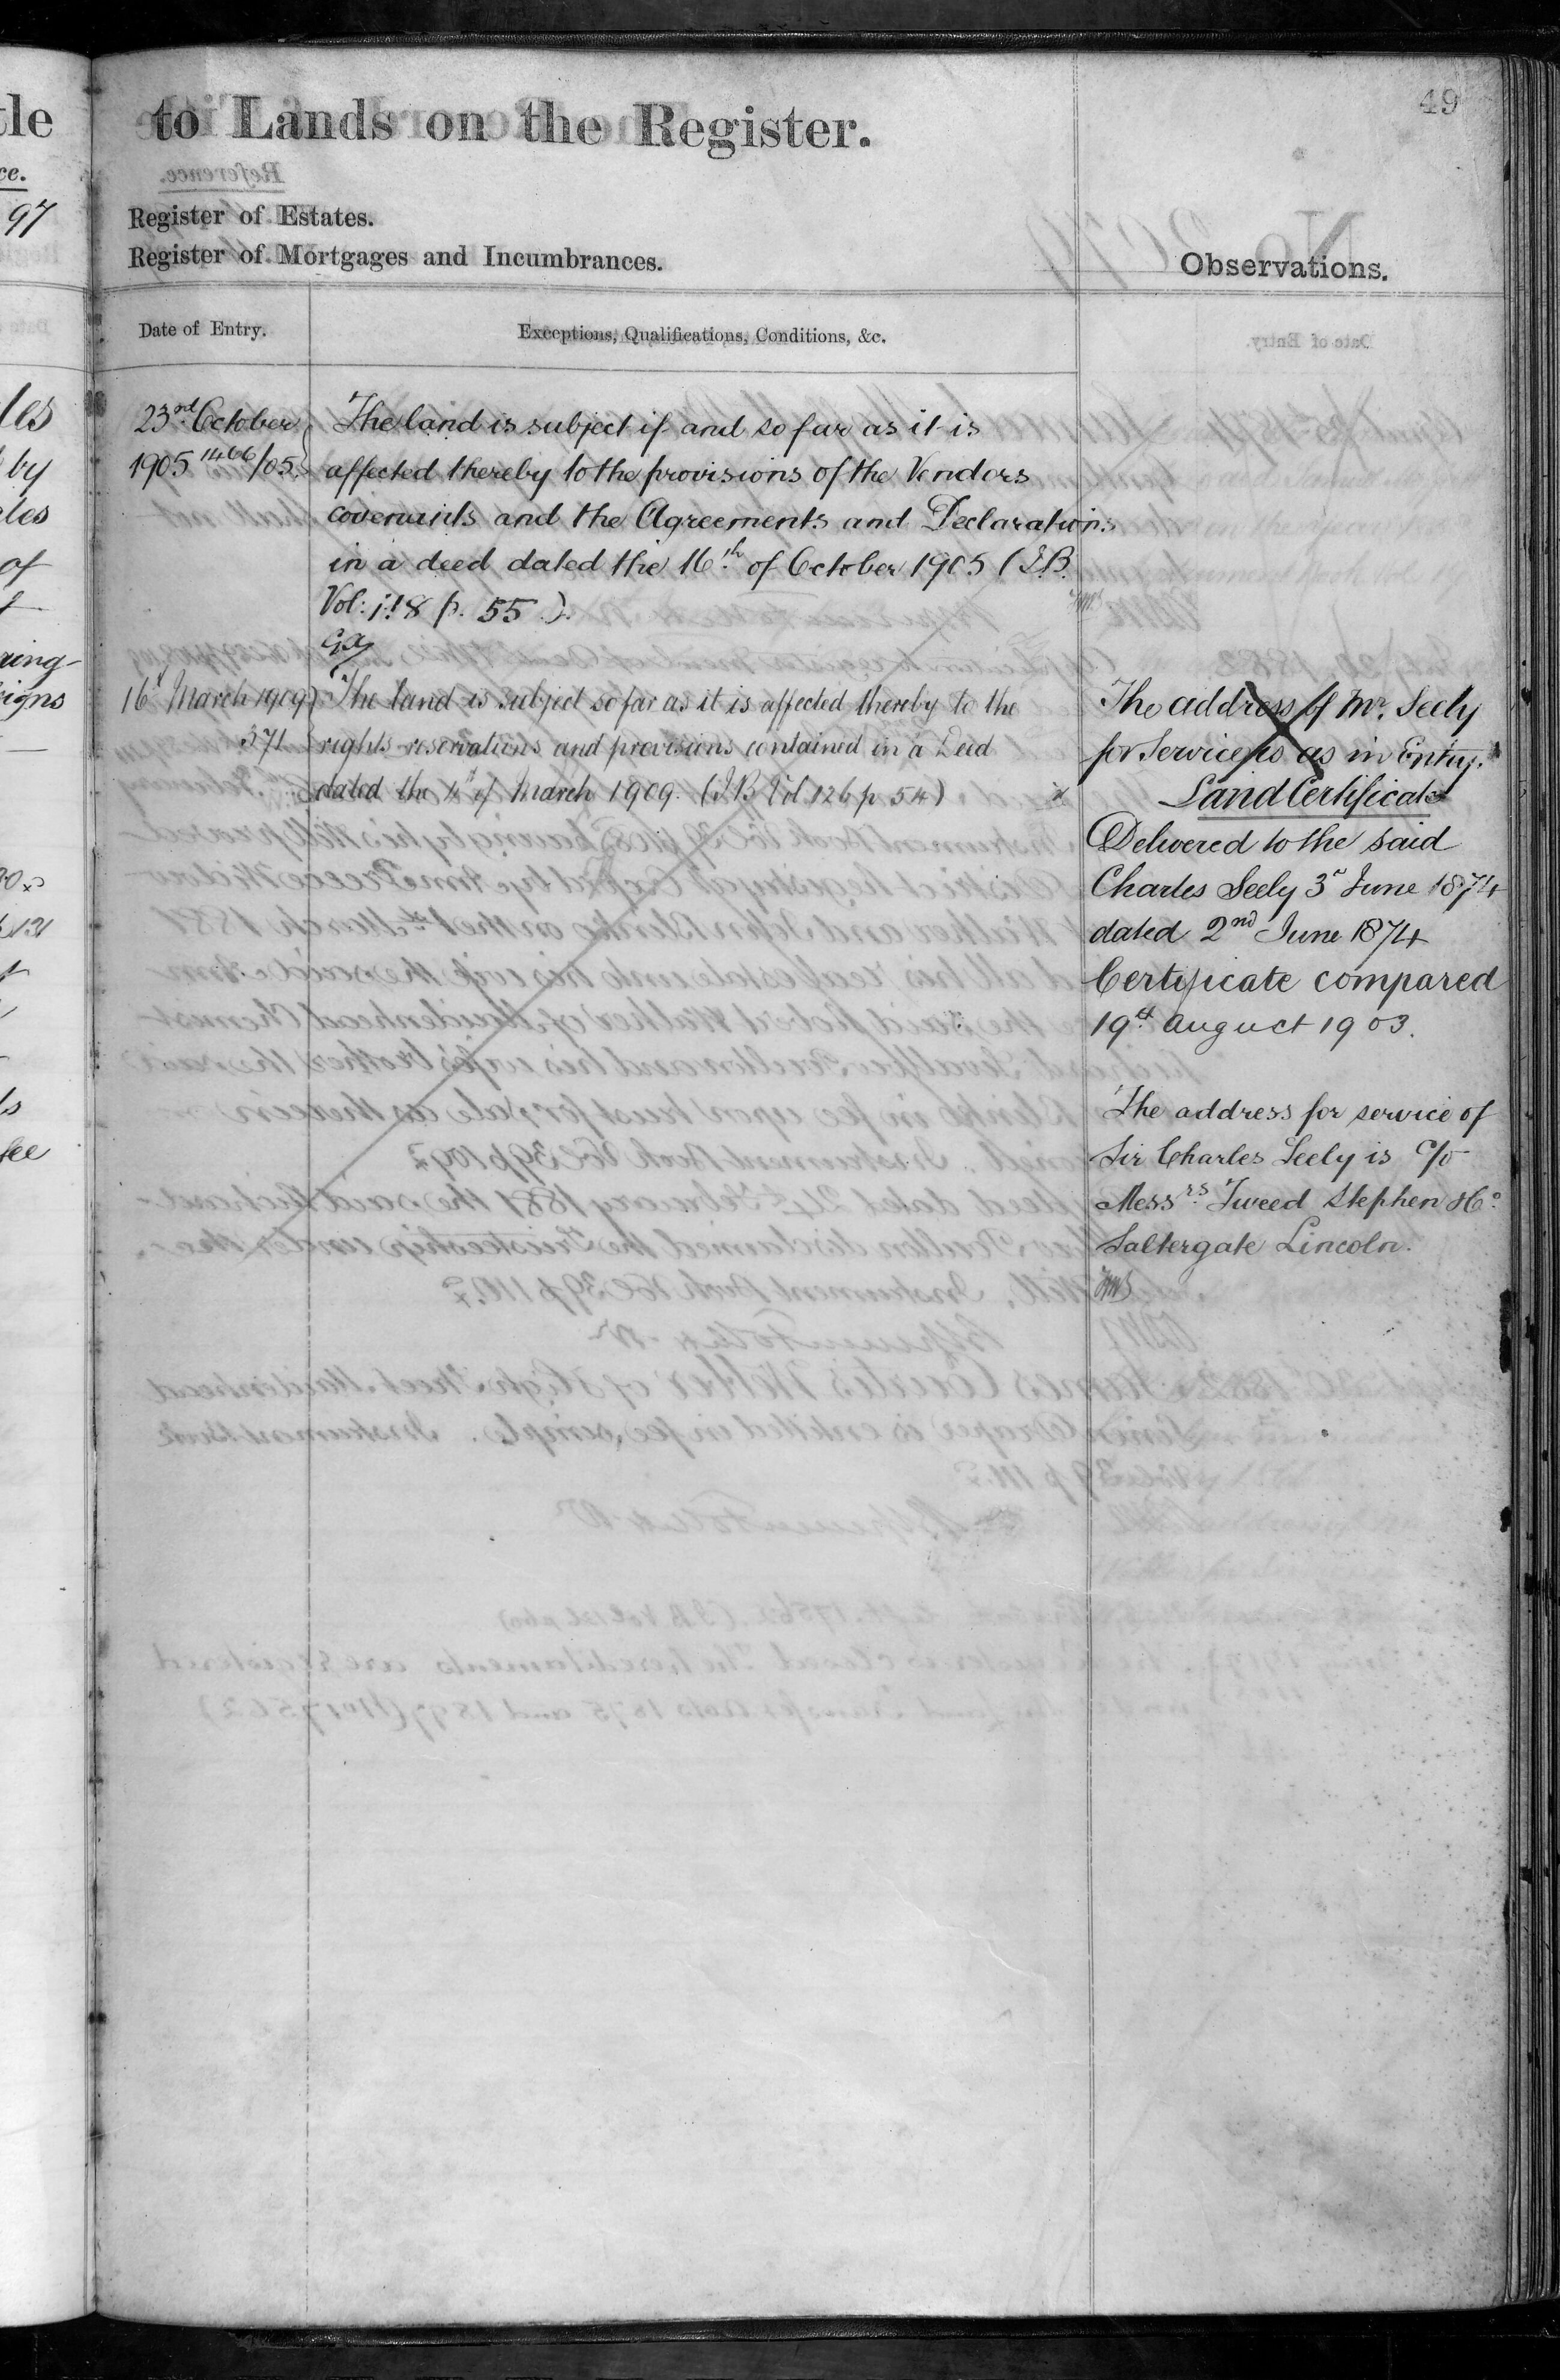 49
to Lands on the Register.
Register of Estates.
Register of Mortgages and Incumbrances.
Observations.
Date of Entry.
Exceptions, Qualifications, Conditions, &c.
23rd October
1905 1466/05
The land is subject if and so far as it is
affected thereby to the provisions of the Vendors
covenants and the Agreements and Declarations
in a deed dated the 16th of October 1905 (I.B.
Vol: 118 p. 55).
16 March 1909
371
The land is subject so far as it is affected thereby to the
rights reservations and provisions contained in a Deed
dated the 4th of March 1909. (I.B. Vol 126 p. 54)
The address of Mr. Seely
for Service is as in Entry.
Land Certificate
Delivered to the said
Charles Seely 3rd June 1874
dated 2nd June 1874
Certificate compared
19th August 1903.
The address for service of
Sir Charles Seely is c/o
Messrs. Tweed Stephen & Co
Saltergate Lincoln.
tle
ce.
97
les
by
of
ring-
signs
fee